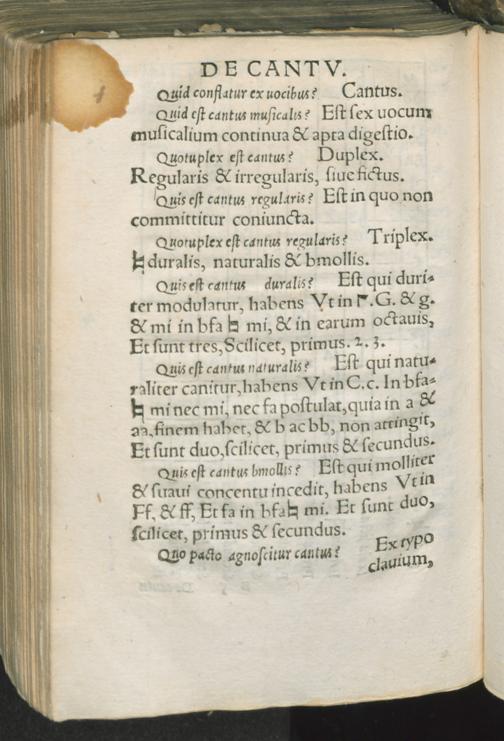 DE CANTV.
Quid conflatur ex uocibus? Cantus.
Quid est cantus musicalis? Est sex uocum
musicalium continua & apta digestio.
Quotuplex est cantus? Duplex.
Regularis & irregularis, siue fictus.
Quis est cantus regularis? Est in quo non
committitur coniuncta.
Quotuplex est cantus regularis? Triplex.
♮ duralis, naturalis & bmollis.
Quis est cantus duralis? Est qui duri-
ter modulatur, habens Vt in Γ. G. & g.
& mi in bfa ♮ mi, & in earum octauis,
Et sunt tres, Scilicet, primus. 2. 3.
Quis est cantus naturalis? Est qui natu-
raliter canitur, habens Vt in C. c. In bfa-
♮ mi nec mi, nec fa postulat, quia in a &
aa, finem habet, & b ac bb, non attingit,
Et sunt duo, scilicet, primus & secundus.
Quis est cantus bmollis? Est qui molliter
& suaui concentu incedit, habens Vt in
Ff, & ff, Et fa in bfa♮ mi. Et sunt duo,
scilicet, primus & secundus.
Quo pacto agnoscitur cantus? Ex typo
clauium,